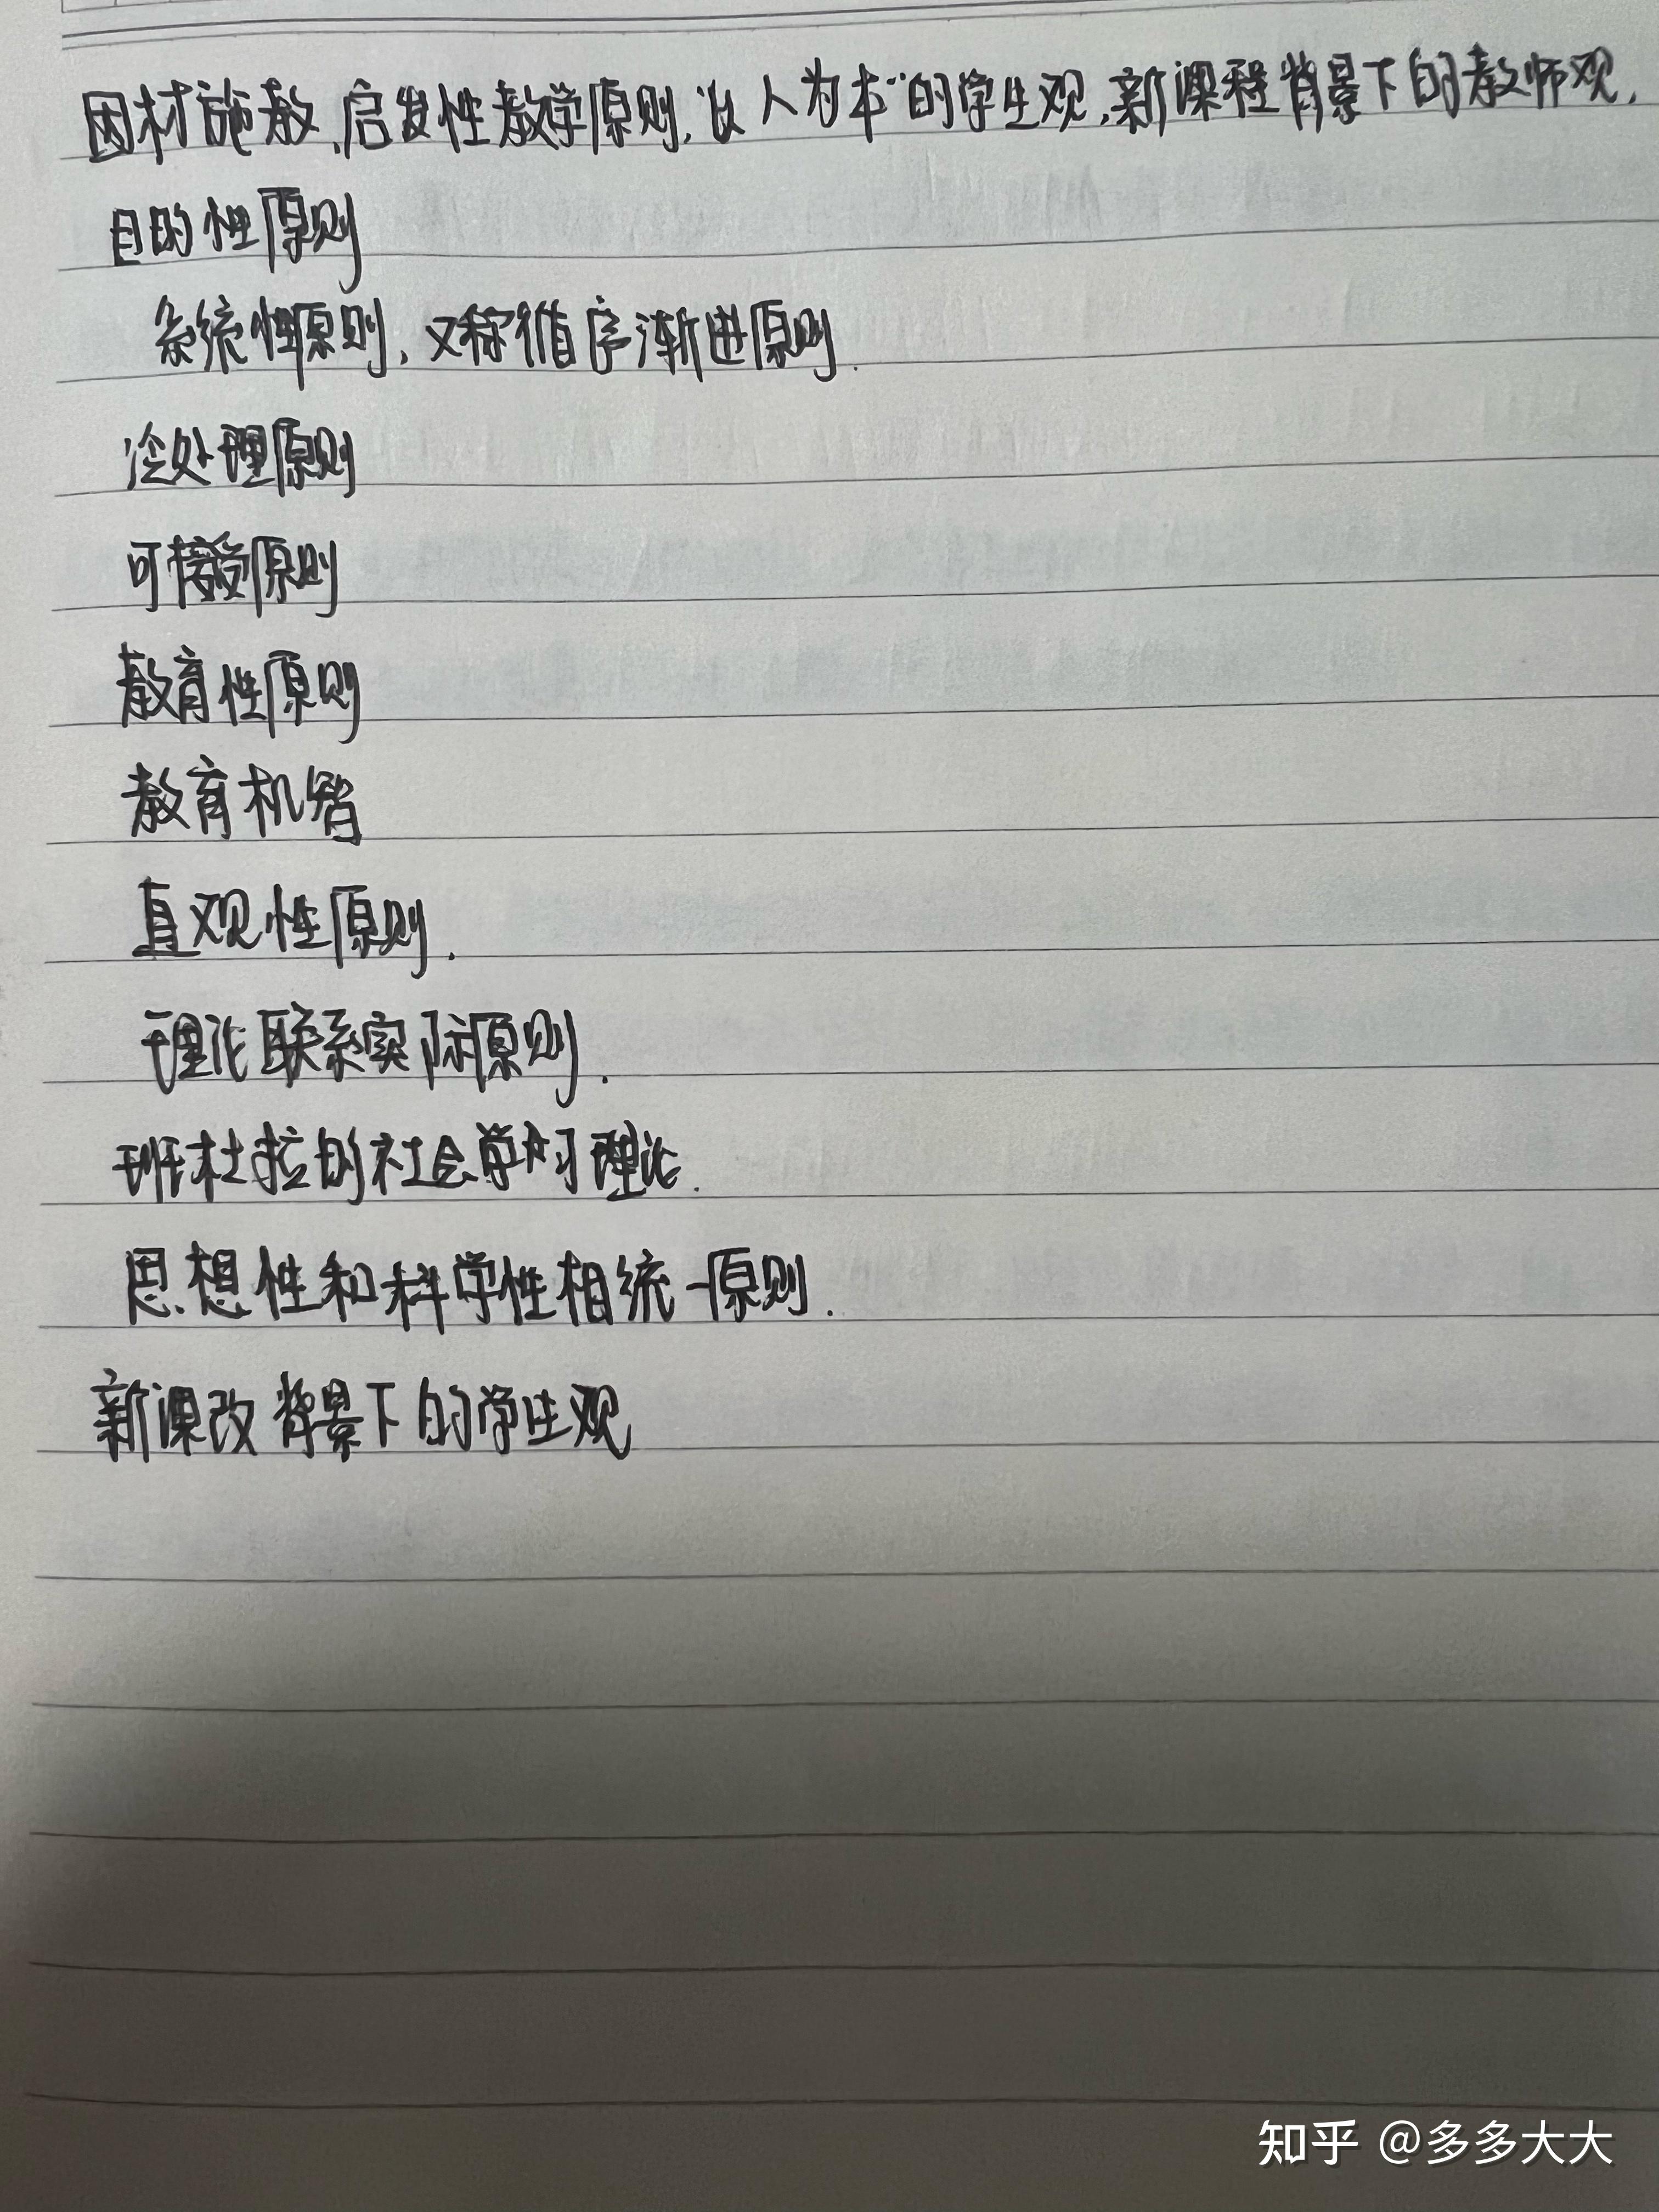 因材施教、启发性教学原则,以人为本"的学生观,新课程背景下的教师观.
目的性原则
系统性原则,又称循序渐进原则.
冷处理原则
可接受原则
教育性原则
教育机智
直观性原则.
理论联系实际原则.
班杜拉的社会学习理论.
思想性和科学性相统一原则.
新课改背景下的学生观
知乎 @多多大大